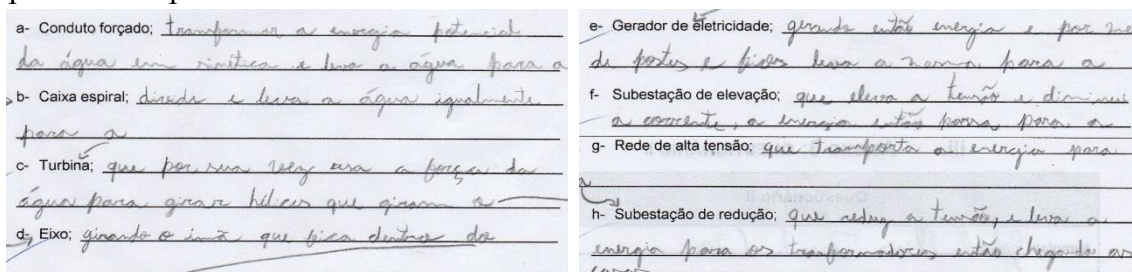 a- Conduto forçado; transformar a energia potencial
da água em cinética e leva a água para a
b- Caixa espiral; divide e leva a água igualmente
para a
c- Turbina; que por sua vez usa a força da
água para girar hélices que giram o
d- Eixo; girando o imã que fica dentro do
e- Gerador de eletricidade; gerando então energia e por me
de postes e fios leva a mesma para a
f- Subestação de elevação; que eleva a tensão e diminui
a corrente, a energia então passa para a
g- Rede de alta tensão; que transporta a energia para
a
h- Subestação de redução; que reduz a tensão, e leva a
energia para os tranformadores então chegando as